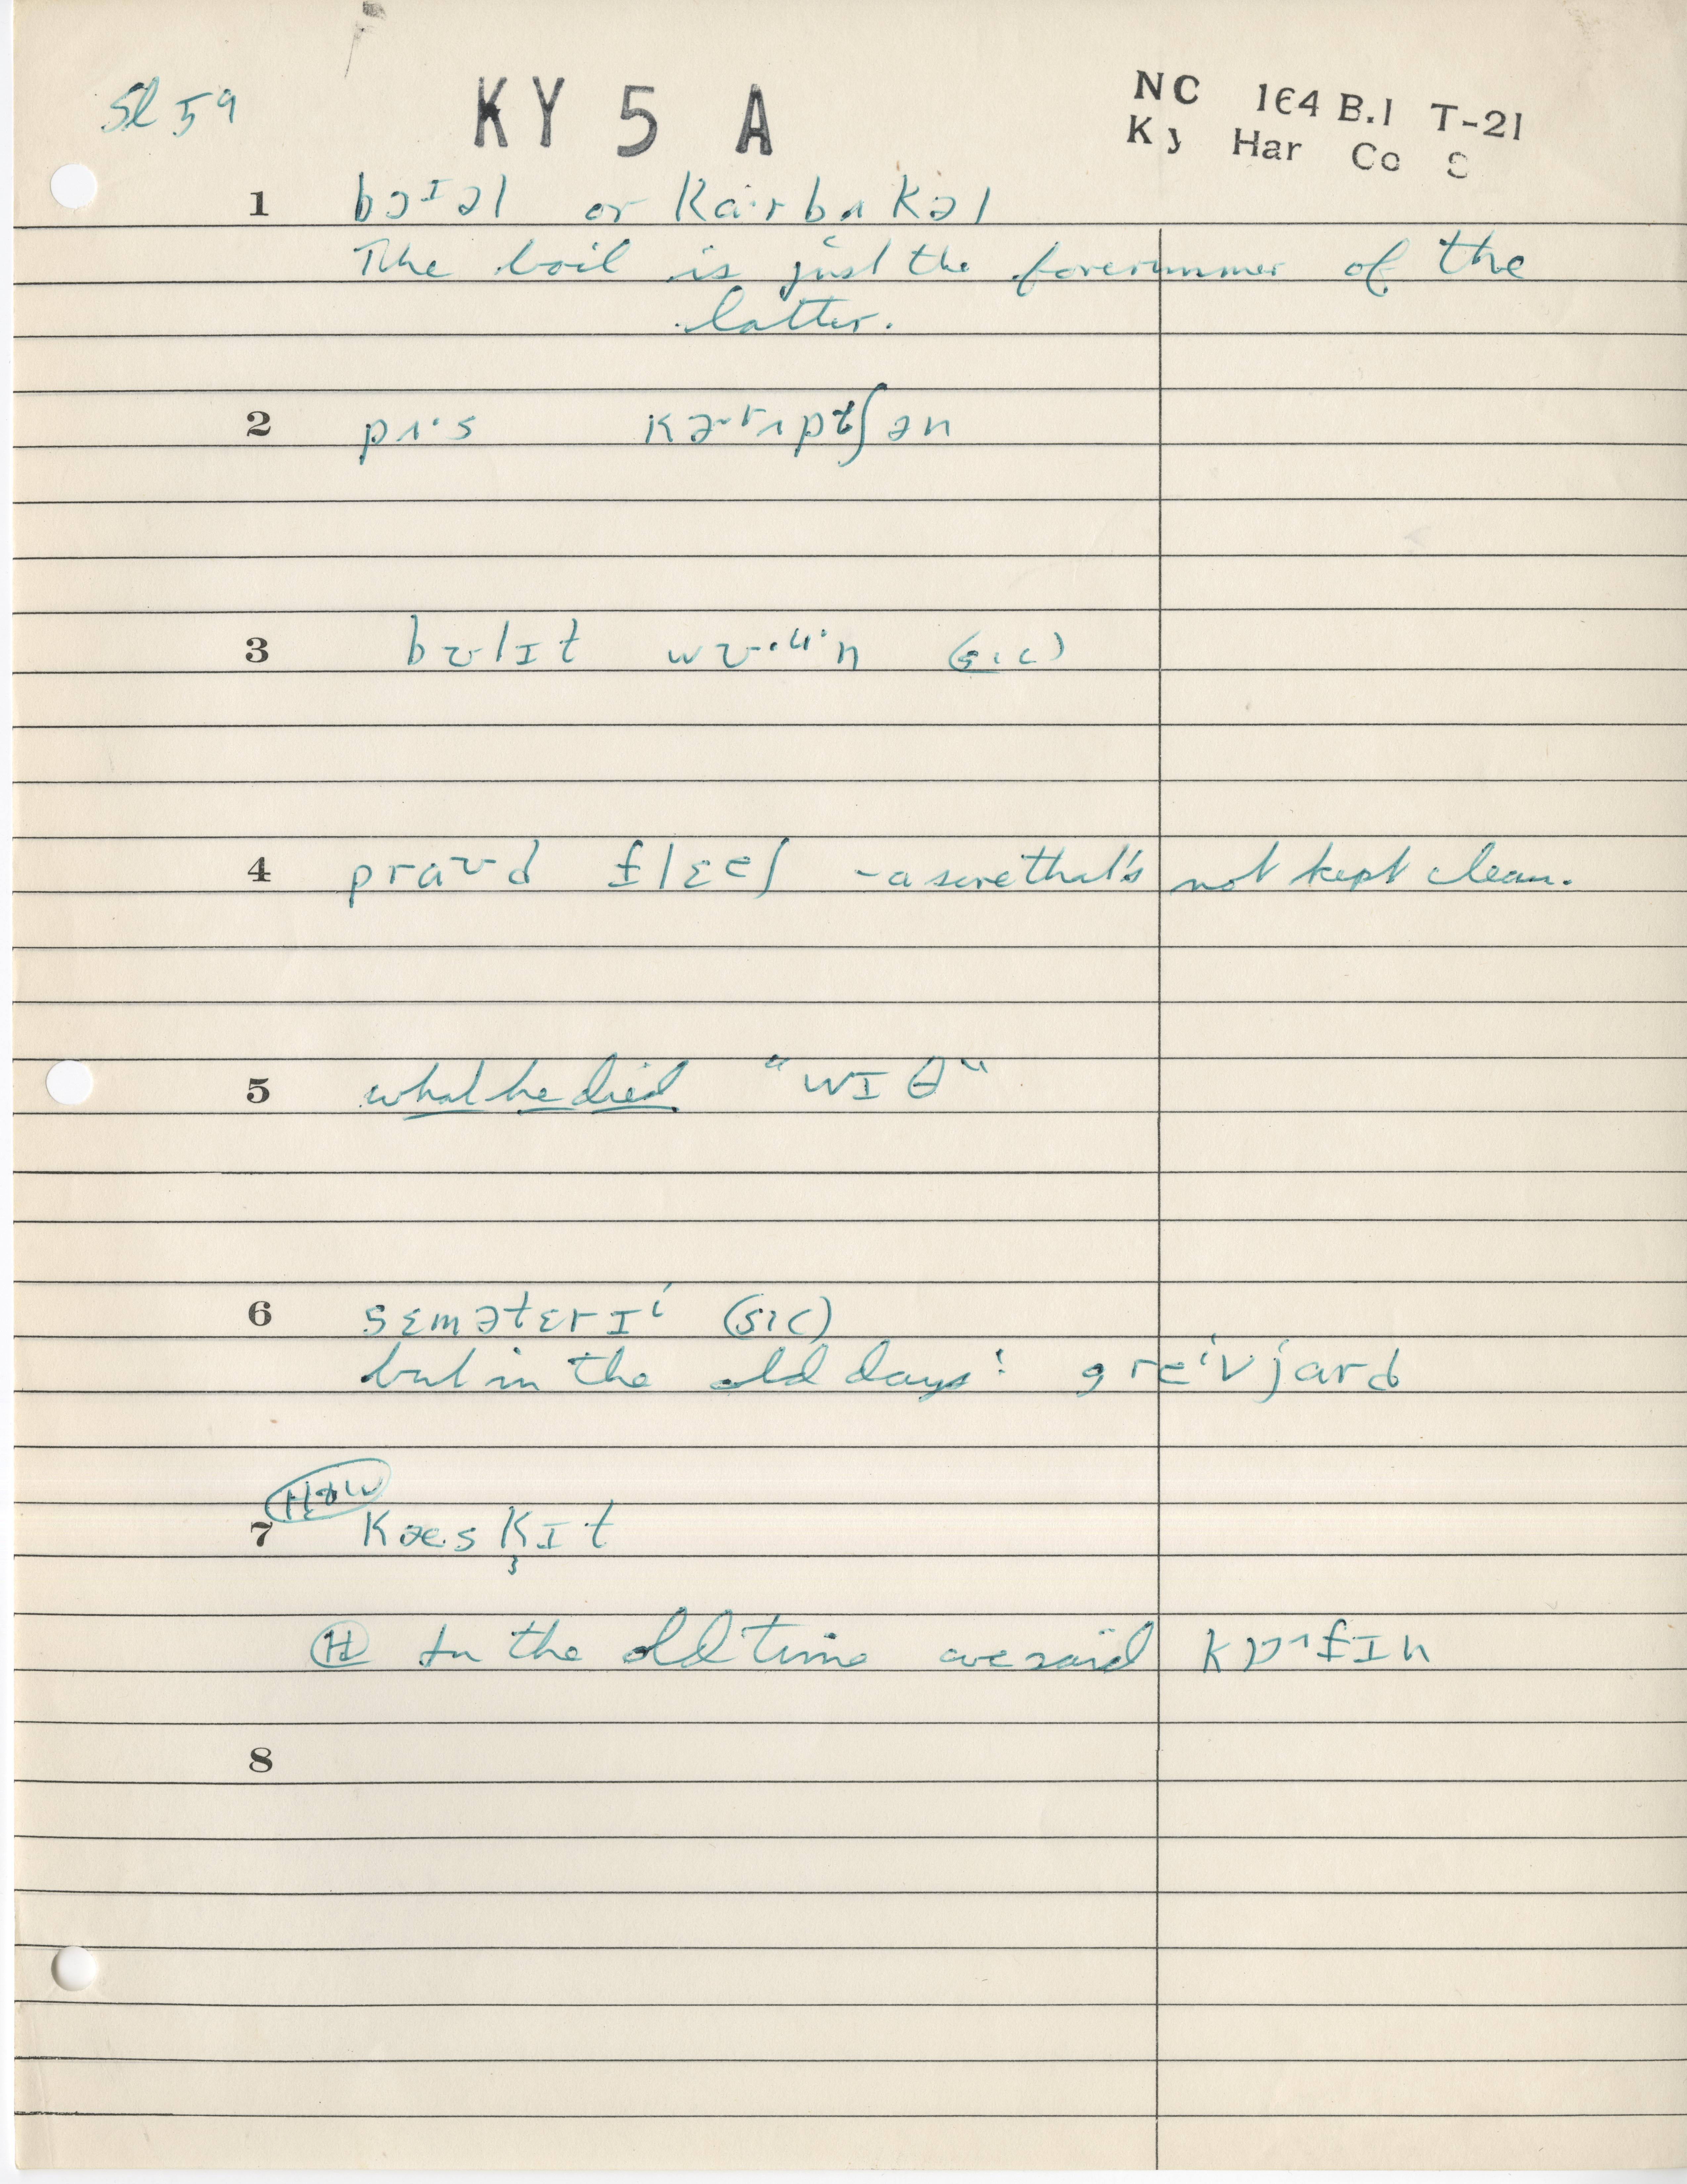 Sl 59
KY 5 A
NC 164 B.1 T-21
Ky Har Co S
1 bɔɪəl or Ka·rbʌKəl
The boil is just the forerunner of the
latter.
2 pʌ·s Kə·rʌptʃən
3 bʊlɪt wʊ·ᵘ·n (sic)
4 praʊd flɛeʃ - a sore that's not kept clean.
5 what he died "wɪθ"
6 sɛmətɛrɪⁱ (sic)
but in the old days: greⁱvjard
7 Kæ·sKɪt
H In the old time we said kɒ^fɪn
8